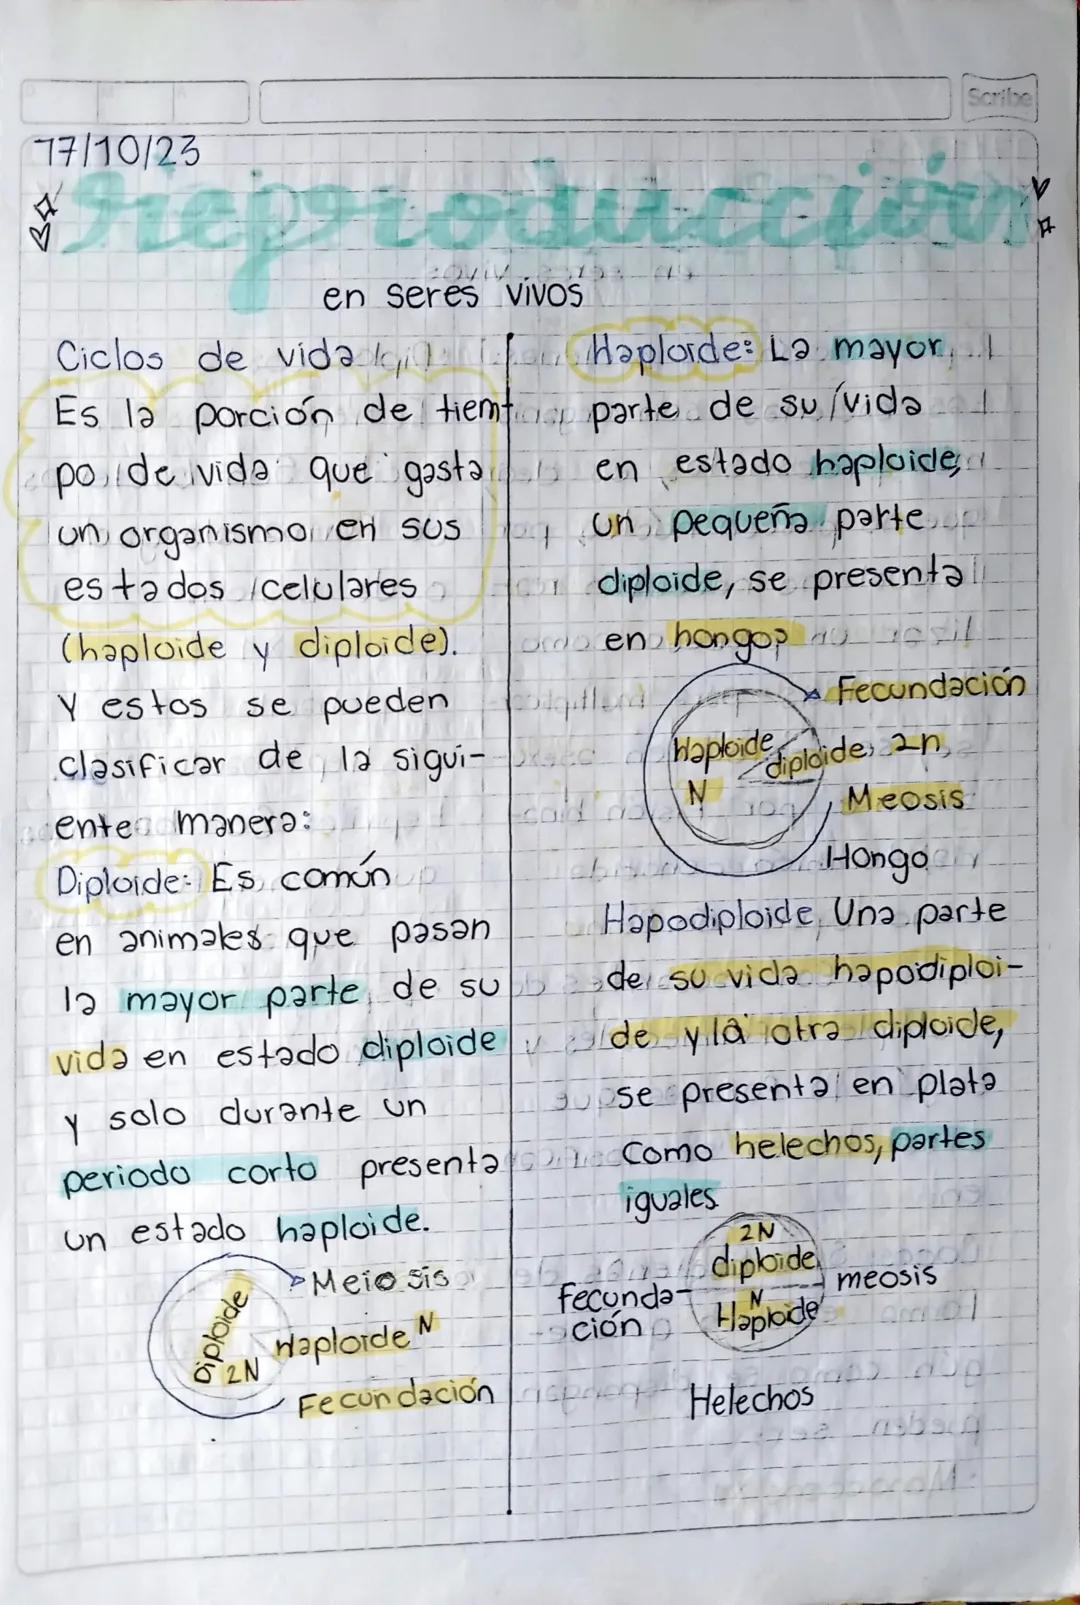 Scribe
17/10/23
reproducción
en seres vivos
Ciclos de vida
Es la porción de tiem
po de vida que gasta
un organismo en sus
estados celulares
(haploide y diploide).
Y estos se pueden
clasificar de la sigui-
ente manera:
Diploide: Es común
en animales que pasan
la mayor parte de su
vida en estado diploide
y solo durante un
periodo corto presenta
un estado haploide.
Meiosis
Diploide
2N
Haploide N
Fecundación
Haploide: La mayor
parte de su vida
en estado haploide,
un pequeña parte
diploide, se presenta
en hongos
Fecundación
Haploide
N
diploide, 2n
Meosis
Hongo
Hapodiploide Una parte
de su vida hapoidiploi-
de y la otra diploide,
se presenta en plata
Como helechos, partes
iguales
2N
diploide
N
Haploide
meosis
fecunda-
ción
Helechos